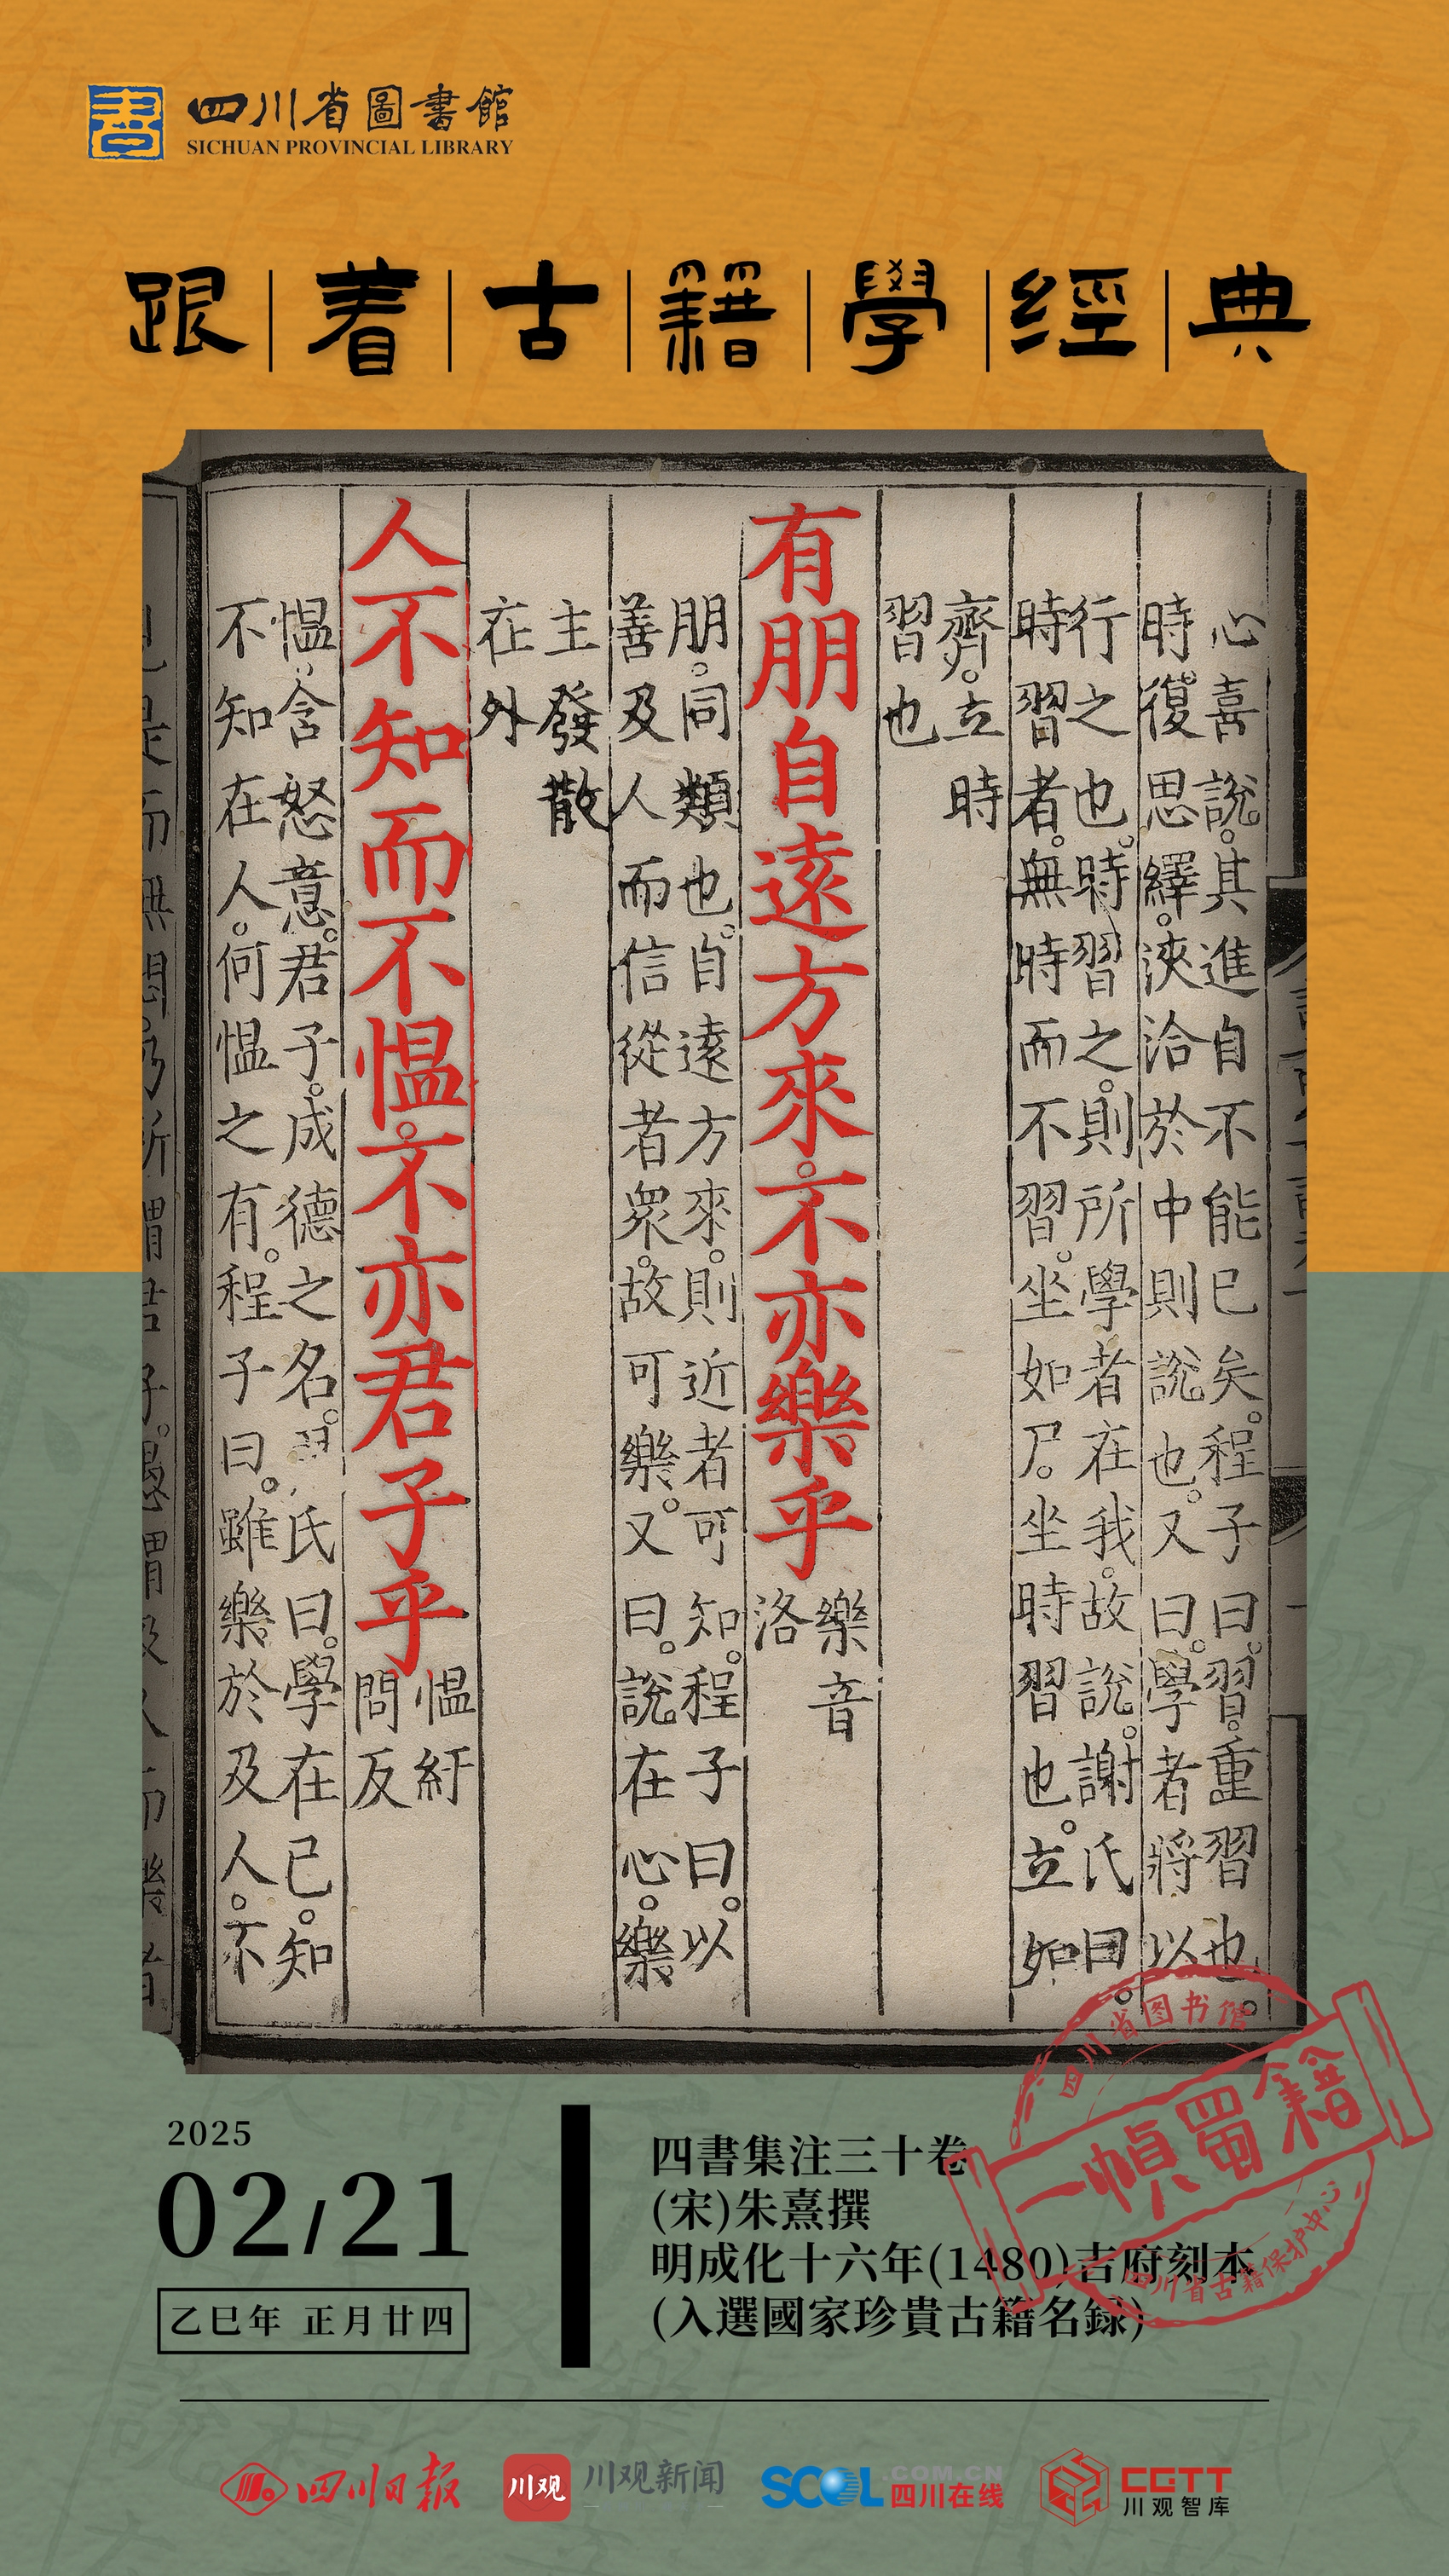 四川省圖書館
SICHUAN PROVINCIAL LIBRARY
跟着古籍學經典
心喜說。其進自不能已矣。程子曰。習。重習也。
時復思繹。浹洽於中則說也。又曰。學者將以
行之也。時習之。則所學者在我。故說。謝氏曰。
時習者。無時而不習。坐如尸。坐時習也。立如
齊。立時
習也
有朋自遠方來。不亦樂乎
樂音
洛
朋。同類也。自遠方來。則近者可知。程子曰。以
善及人而信從者衆。故可樂。又曰。說在心。樂
主發散
在外
人不知而不愠。不亦君子乎
愠紆
問反
愠。含怒意。君子。成德之名。氏曰。學在己。知
不知在人。何愠之有。程子曰。雖樂於及人。不
2025
02/21
乙巳年 正月廿四
四書集注三十卷
(宋)朱熹撰
明成化十六年(1480)吉府刻本
(入選國家珍貴古籍名録)
四川省图书馆
一幀蜀籍
四川省古籍保护中心
四川日报
川观 川观新闻
SCOL.COM.CN
四川在线
CGTT
川观智库